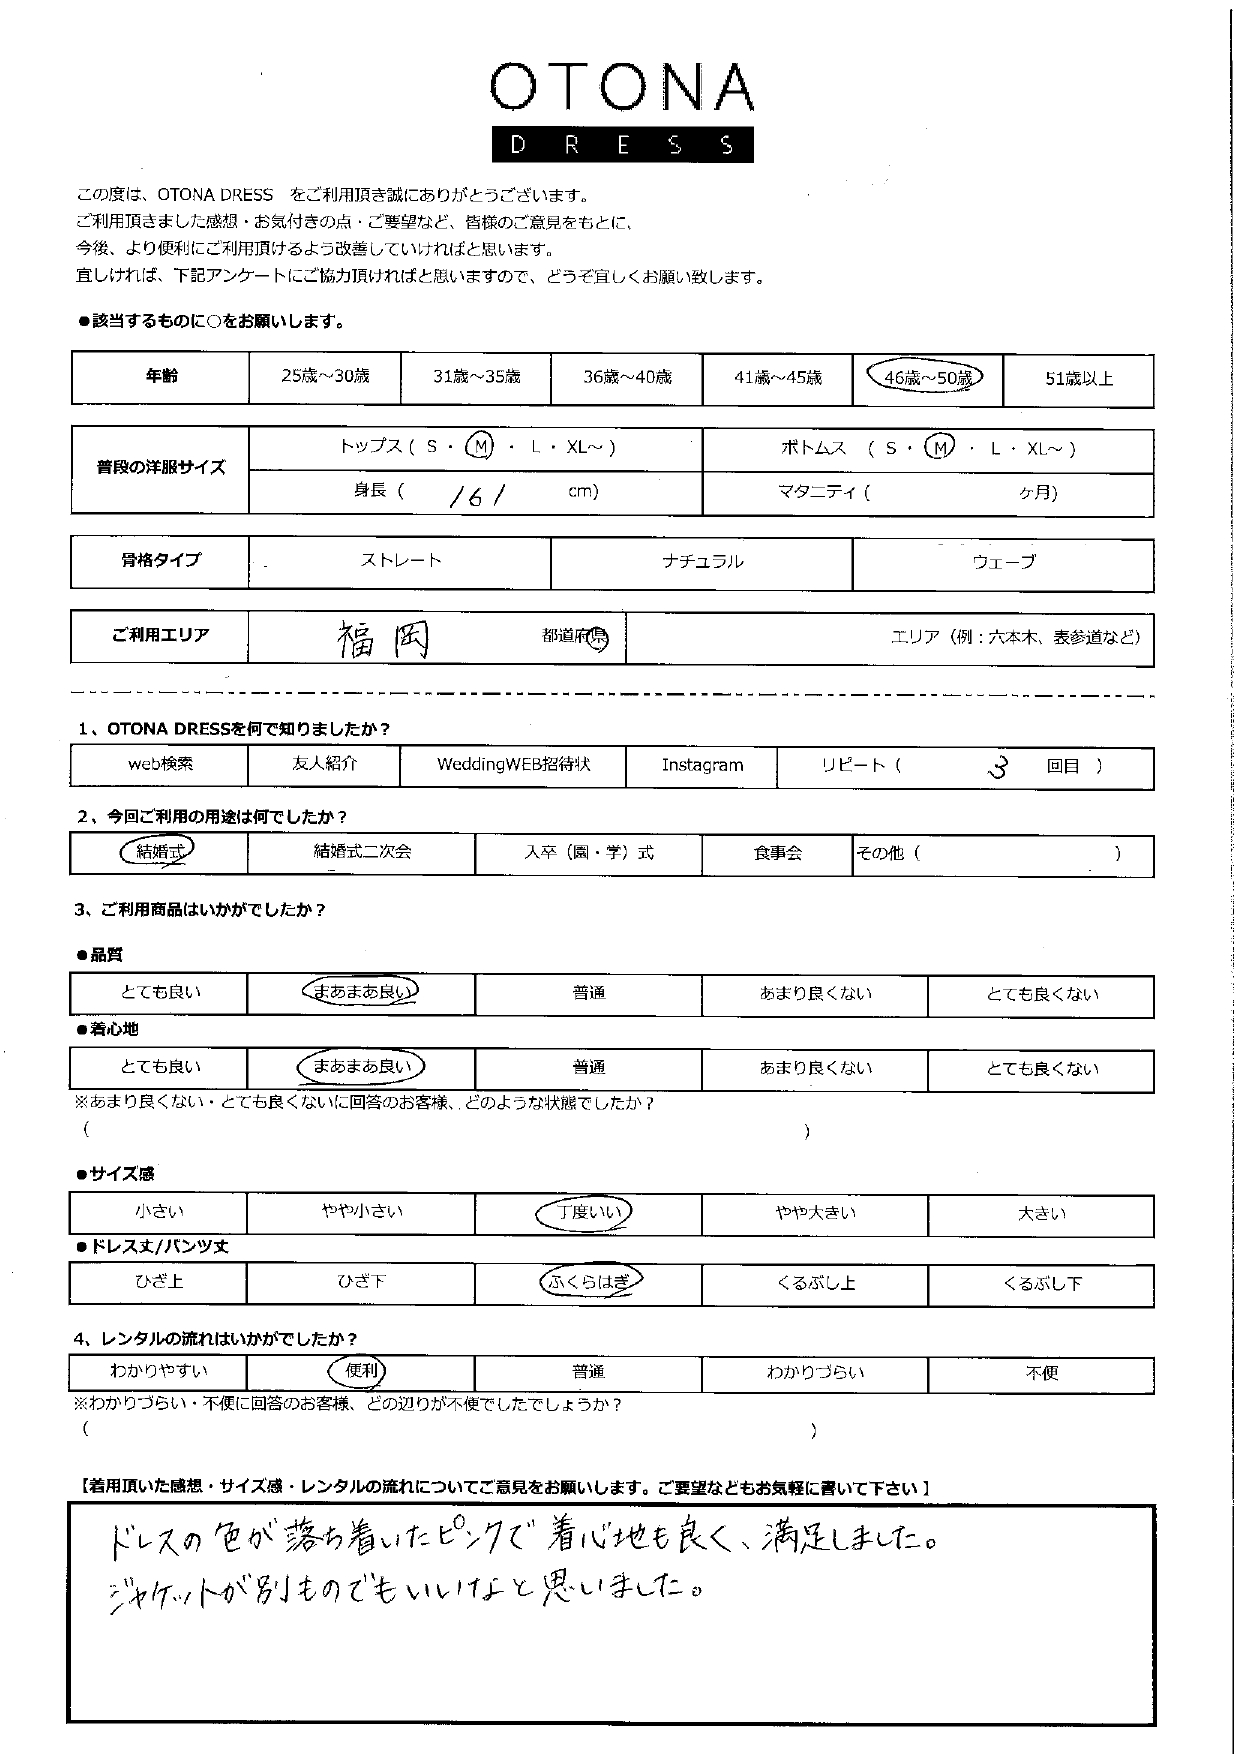 OTONA
DRESS
この度は、OTONA DRESS をご利用頂き誠にありがとうございます。
ご利用頂きました感想・お気付きの点・ご要望など、皆様のご意見をもとに、
今後、より便利にご利用頂けるよう改善していければと思います。
宜しければ、下記アンケートにご協力頂ければと思いますので、どうぞ宜しくお願い致します。
●該当するものに○をお願いします。
年齢 25歳～30歳 31歳～35歳 36歳～40歳 41歳～45歳 46歳～50歳 51歳以上
普段の洋服サイズ トップス( S ・ M ・ L ・ XL～ ) ボトムス ( S ・ M ・ L ・ XL～ )
身長 ( 161 cm) マタニティ ( ケ月)
骨格タイプ ストレート ナチュラル ウェーブ
ご利用エリア 福岡 都道府県 エリア（例：六本木、表参道など）
1、OTONA DRESSを何で知りましたか？
web検索 友人紹介 WeddingWEB招待状 Instagram リピート ( 3 回目 )
2、今回ご利用の用途は何でしたか？
結婚式 結婚式二次会 入卒（園・学）式 食事会 その他 ( )
3、ご利用商品はいかがでしたか？
●品質
とても良い まあまあ良い 普通 あまり良くない とても良くない
●着心地
とても良い まあまあ良い 普通 あまり良くない とても良くない
※あまり良くない・とても良くないに回答のお客様、どのような状態でしたか？
( )
●サイズ感
小さい やや小さい 丁度いい やや大きい 大きい
●ドレス丈/パンツ丈
ひざ上 ひざ下 ふくらはぎ くるぶし上 くるぶし下
4、レンタルの流れはいかがでしたか？
わかりやすい 便利 普通 わかりづらい 不便
※わかりづらい・不便に回答のお客様、どの辺りが不便でしたでしょうか？
( )
【着用頂いた感想・サイズ感・レンタルの流れについてご意見をお願いします。ご要望などもお気軽に書いて下さい】
ドレスの色が落ち着いたピンクで着心地も良く、満足しました。
ジャケットが別ものでもいいけよと思いました。